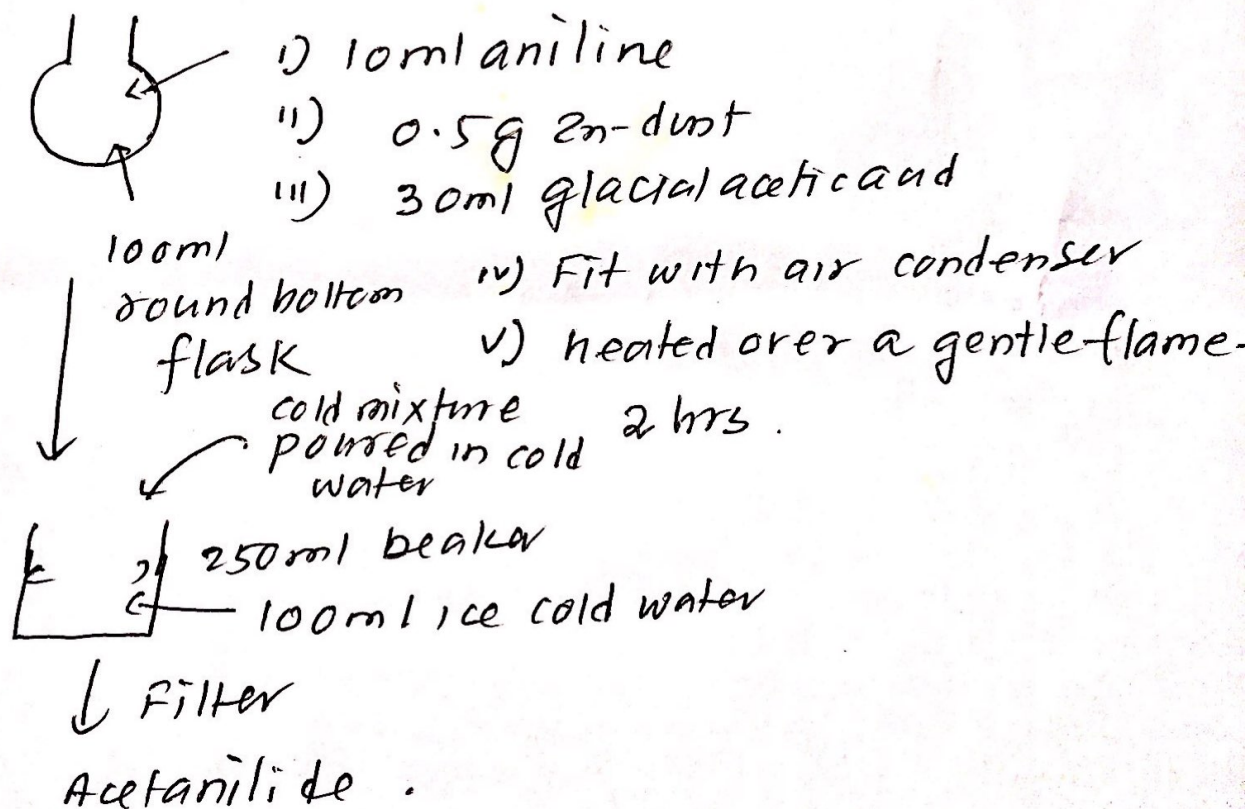 i) 10ml aniline
ii) 0.5g Zn-dust
iii) 30ml glacial acetic acid
100ml
round bottom
flask
iv) Fit with air condenser
v) heated over a gentle flame-
2 hrs.
cold mixture
poured in cold
water
250ml beaker
100ml ice cold water
Filter
Acetanilide.